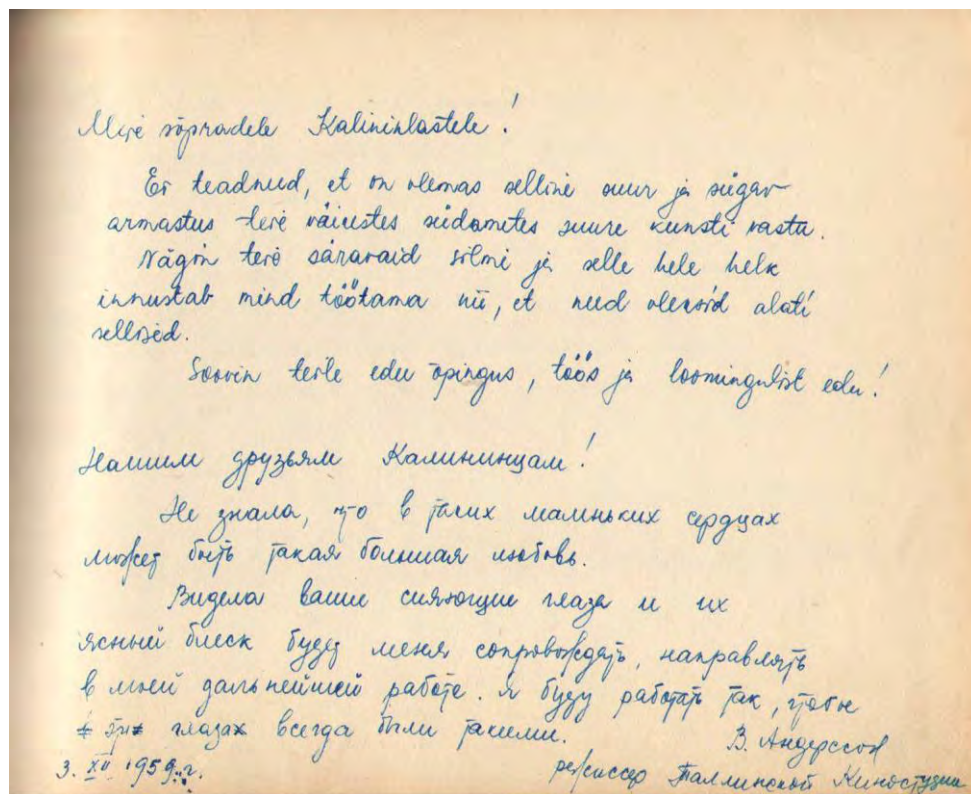 Meie sõpradele Kalininlastele!
Ei teadnud, et on olemas selline suur ja sügav
armastus teie väikestes südametes suure kunsti vastu.
Nägin teie säravaid silmi ja selle hele helk
innustab mind töötama nii, et need oleksid alati
sellised.
Soovin teile edu õpingus, töös ja loomingulist edu!
Нашим друзьям Калининцам!
Не знала, что в таких маленьких сердцах
может быть такая большая любовь.
Видела ваши сияющие глаза и их
ясный блеск будет меня сопровождать, направлять
в моей дальнейшей работе. Я буду работать так, чтобы
эти глазах всегда были такими.
В. Андерссон
3. XII 1959 г.
режиссер Таллинской Киностудии